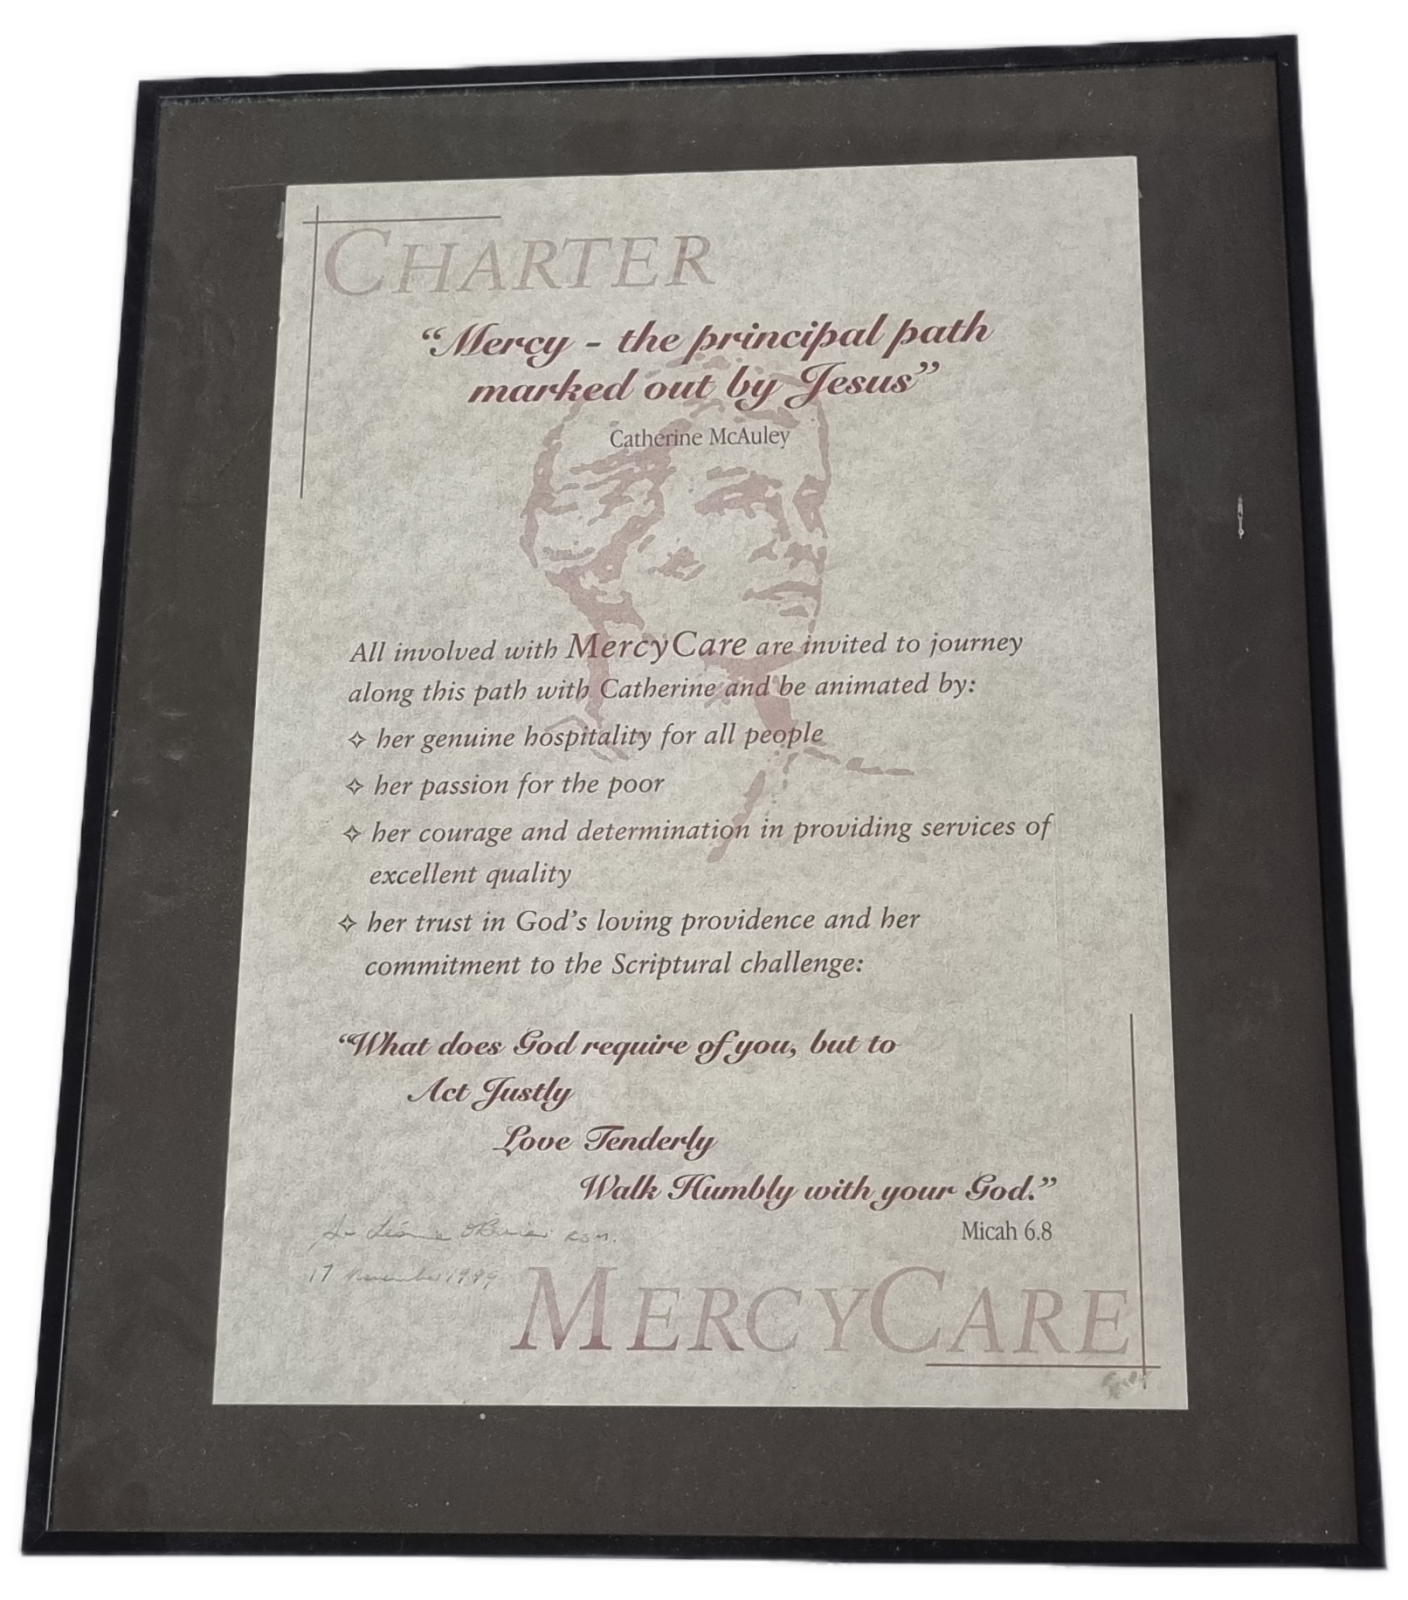 CHARTER
“Mercy - the principal path
marked out by Jesus”
Catherine McAuley
All involved with MercyCare are invited to journey
along this path with Catherine and be animated by:
✧ her genuine hospitality for all people
✧ her passion for the poor
✧ her courage and determination in providing services of
excellent quality
✧ her trust in God’s loving providence and her
commitment to the Scriptural challenge:
“What does God require of you, but to
Act Justly
Love Tenderly
Walk Humbly with your God.”
Micah 6.8
Sr O'Brien RSM.
17 November 1999
MERCYCARE